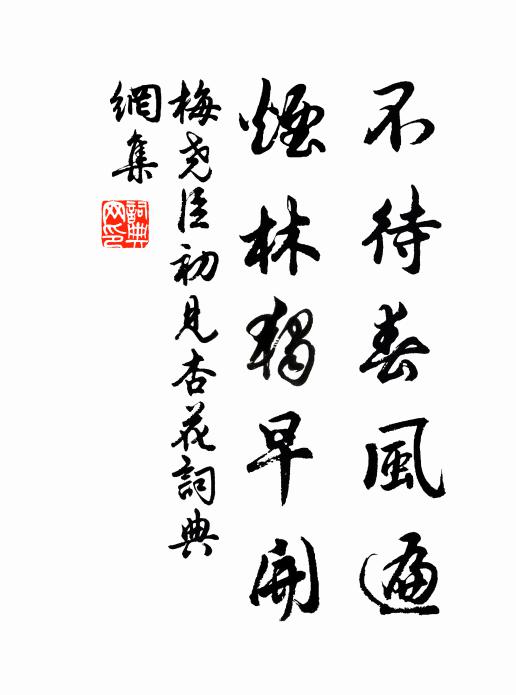 不待春風遍
煙林獨早開
梅尧臣初見杏花詞典
網集
詞典網印